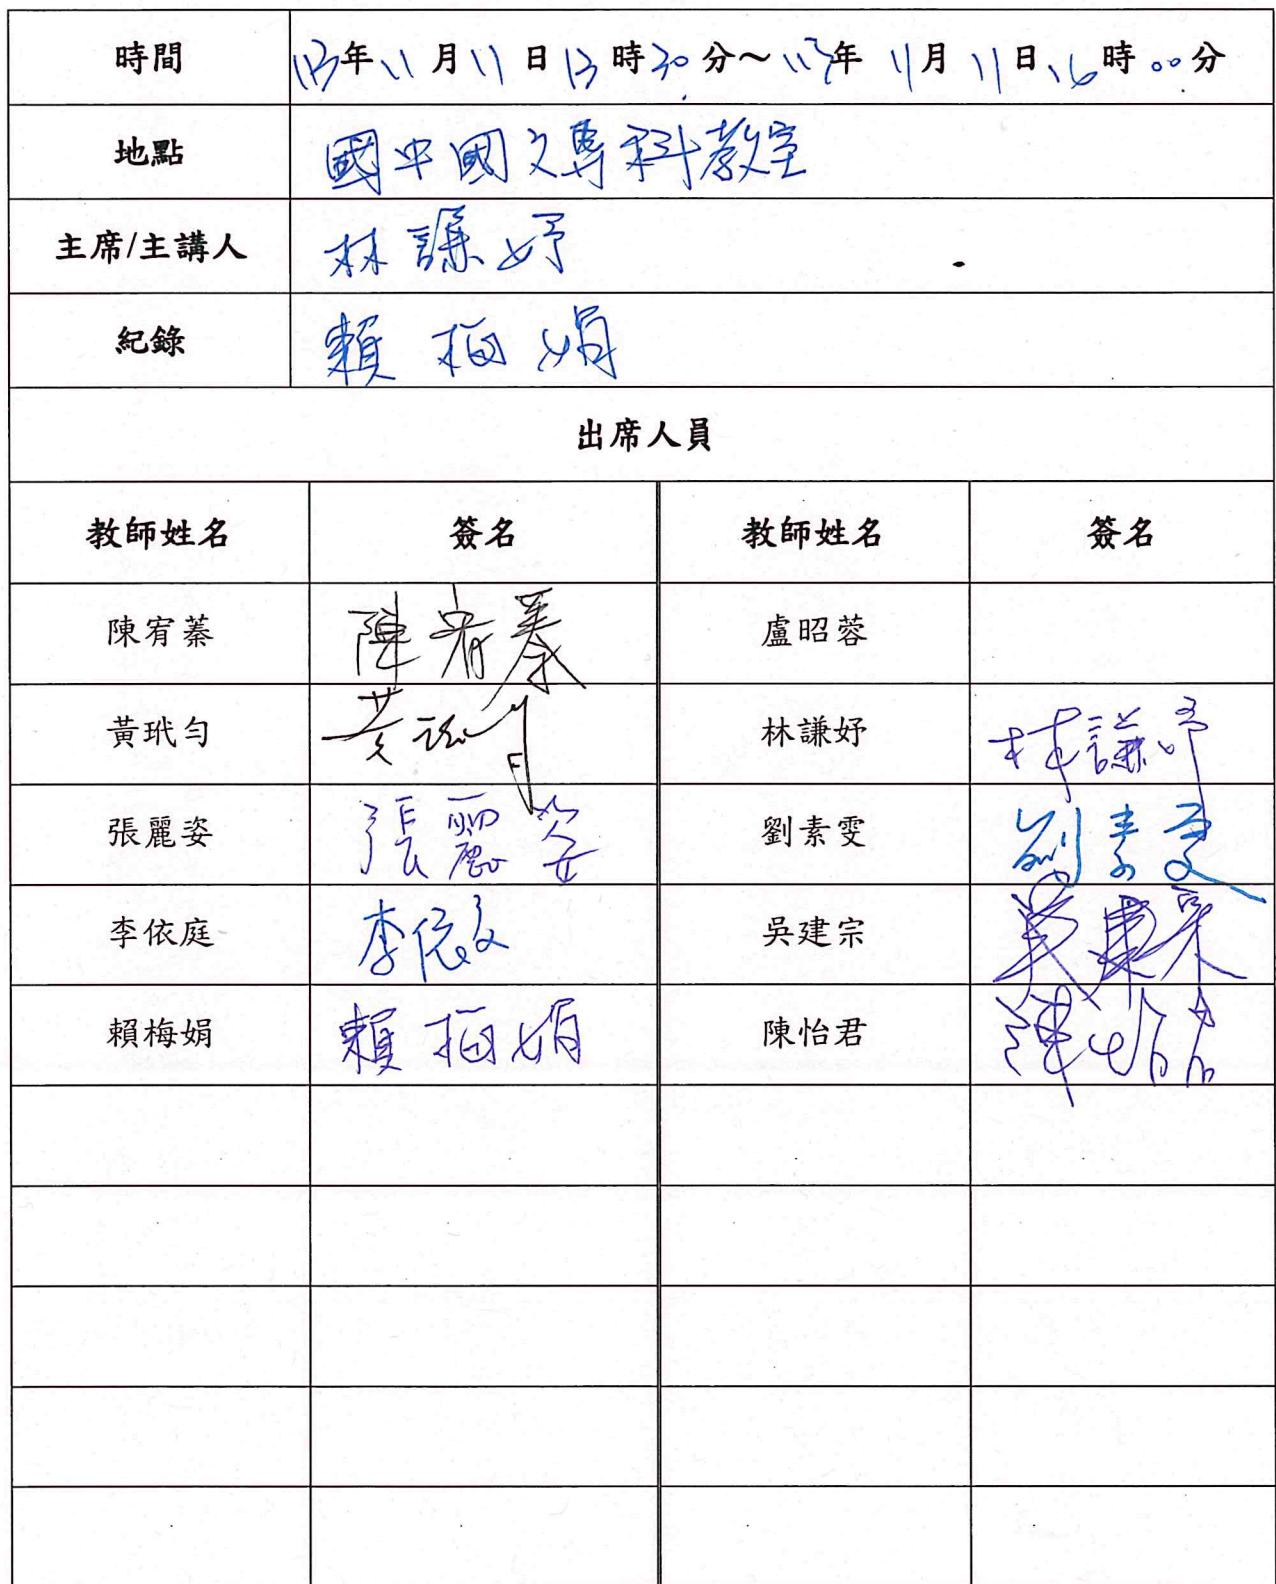 時間 113年11月11日13時30分～113年11月11日16時00分
地點 國中國文專科教室
主席/主講人 林謙妤
紀錄 賴梅娟
出席人員
教師姓名 簽名 教師姓名 簽名
陳宥蓁 陳宥蓁 盧昭蓉
黃玳勻 黃 林謙妤 林謙妤
張麗姿 張麗姿 劉素雯 劉素雯
李依庭 李依 吳建宗 吳建宗
賴梅娟 賴梅娟 陳怡君 陳怡君